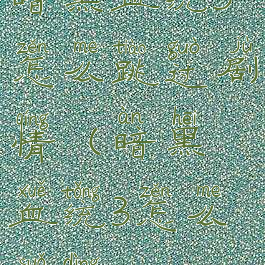 zěn me tiào guò jù
怎么跳过剧
qíng àn hēi
情(暗黑
xuè tǒng zěn me
血统3怎么
suǒ dìng